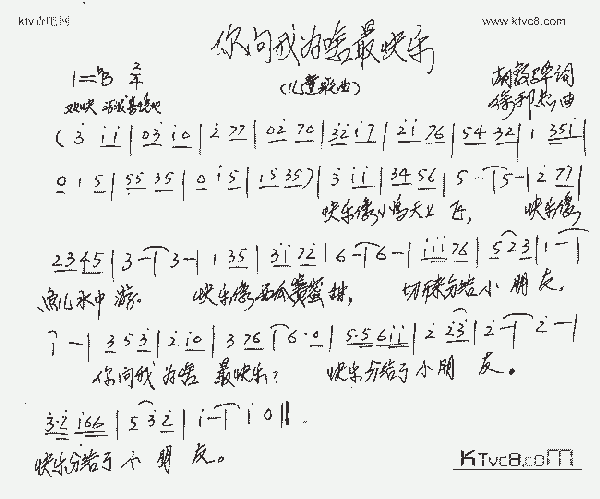 www.ktvc8.com
你问我为啥最快乐
(儿童歌曲)
1=♭B 2/4
词
曲
欢快
(3 i i | 0 3 i 0 | 2 7 7 | 0 2 7 0 | 3 2 i 7 | 2 i 7 6 | 5 4 3 2 | 1 3 5 i |
0 1 5 | 5 5 3 5 | 0 i 5 | 1 5 3 5) | 3 i i | 3 4 5 6 | 5 - | 5 - | 2 7 7 |
快乐像小鸟天上飞, 快乐像
2 3 4 5 | 3 - | 3 - | 1 3 5 | 3 i 7 2 | 6 - | 6 - | i i i 7 6 | 5 2 3 | 1 - |
鱼儿水中游。 快乐像西瓜蜜甜, 切开来分给小朋友。
1 - | 3 5 3 | 2 i 0 | 3 7 6 | 6 · 0 | 5·5 6 i i | 2 2 3 | 2 - | 2 - |
你问我为啥最快乐? 快乐分给了小朋友。
3·2 i 6 6 | 5 3 2 | i - | i 0 ‖
快乐分给了小朋友。
KTvc8.com